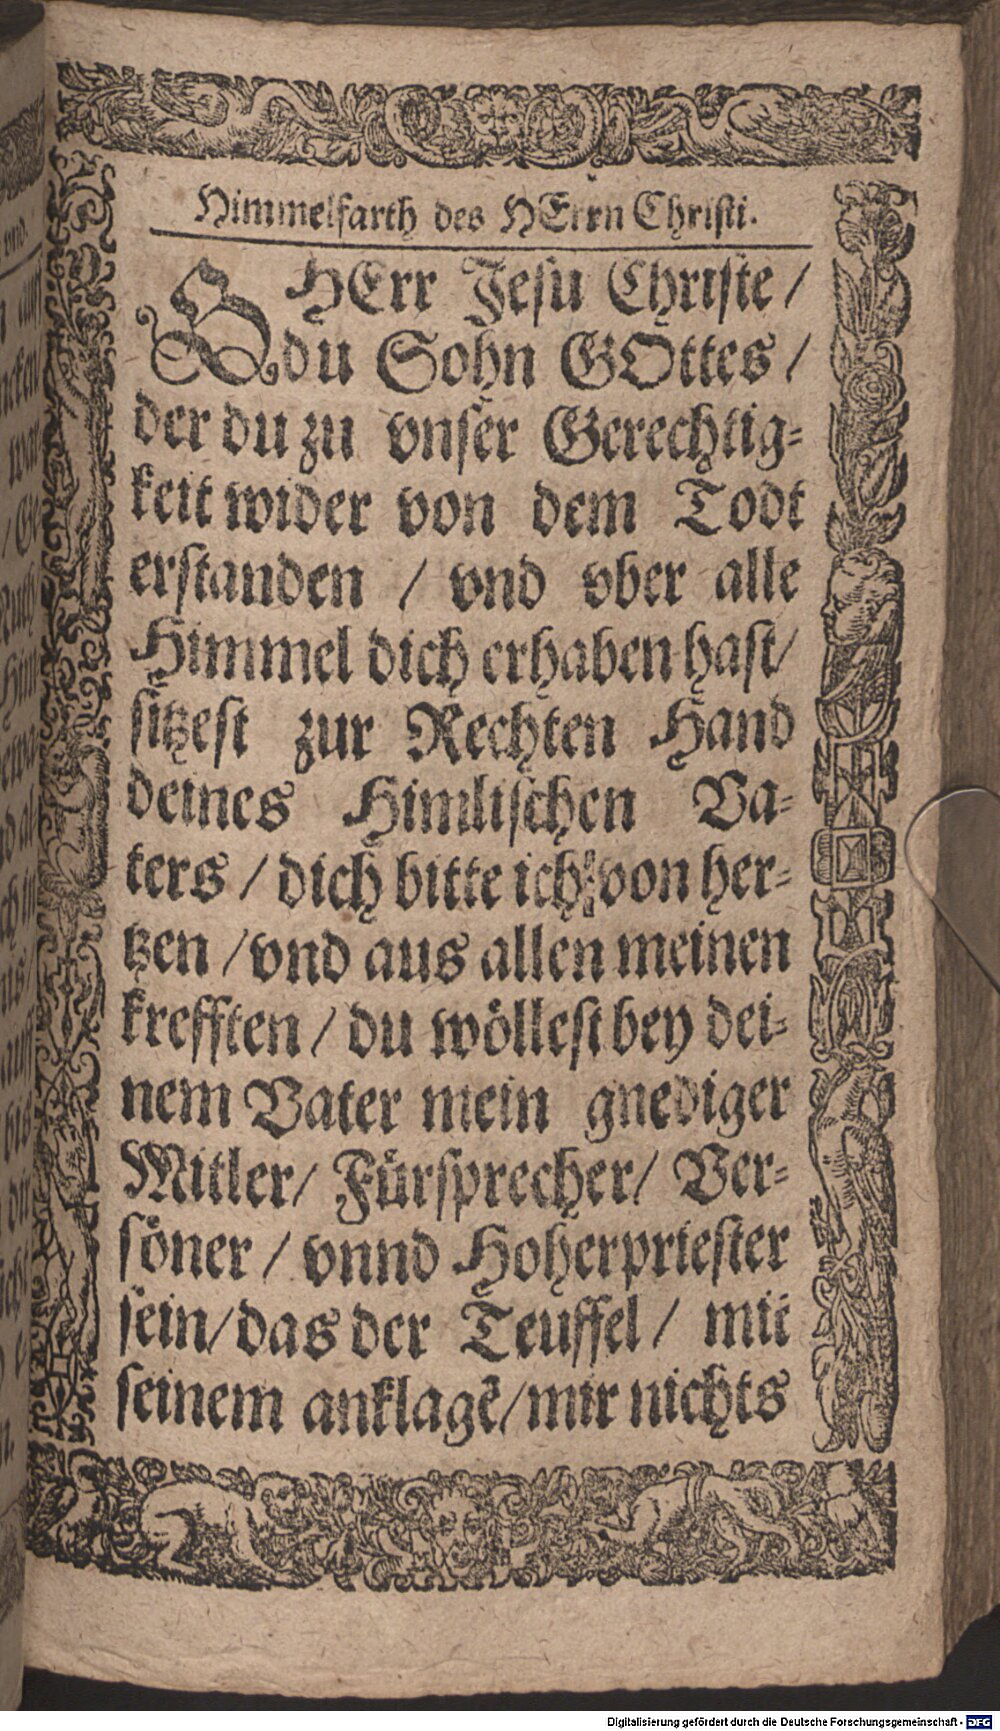 Himmelfarth des HErrn Christi.
O HErr Jesu Christe /
du Sohn GOttes /
der du zu vnser Gerechtig-
keit wider von dem Todt
erstanden / vnd vber alle
Himmel dich erhaben hast /
sitzest zur Rechten Hand
deines Himlischen Va-
ters / dich bitte ich von her-
tzen / vnd aus allen meinen
krefften / du wöllest bey dei-
nem Vater mein gnediger
Mitler / Fürsprecher / Ver-
söner / vnnd Hoherpriester
sein / das der Teuffel / mit
seinem anklagẽ / mir nichts
Digitalisierung gefördert durch die Deutsche Forschungsgemeinschaft - DFG